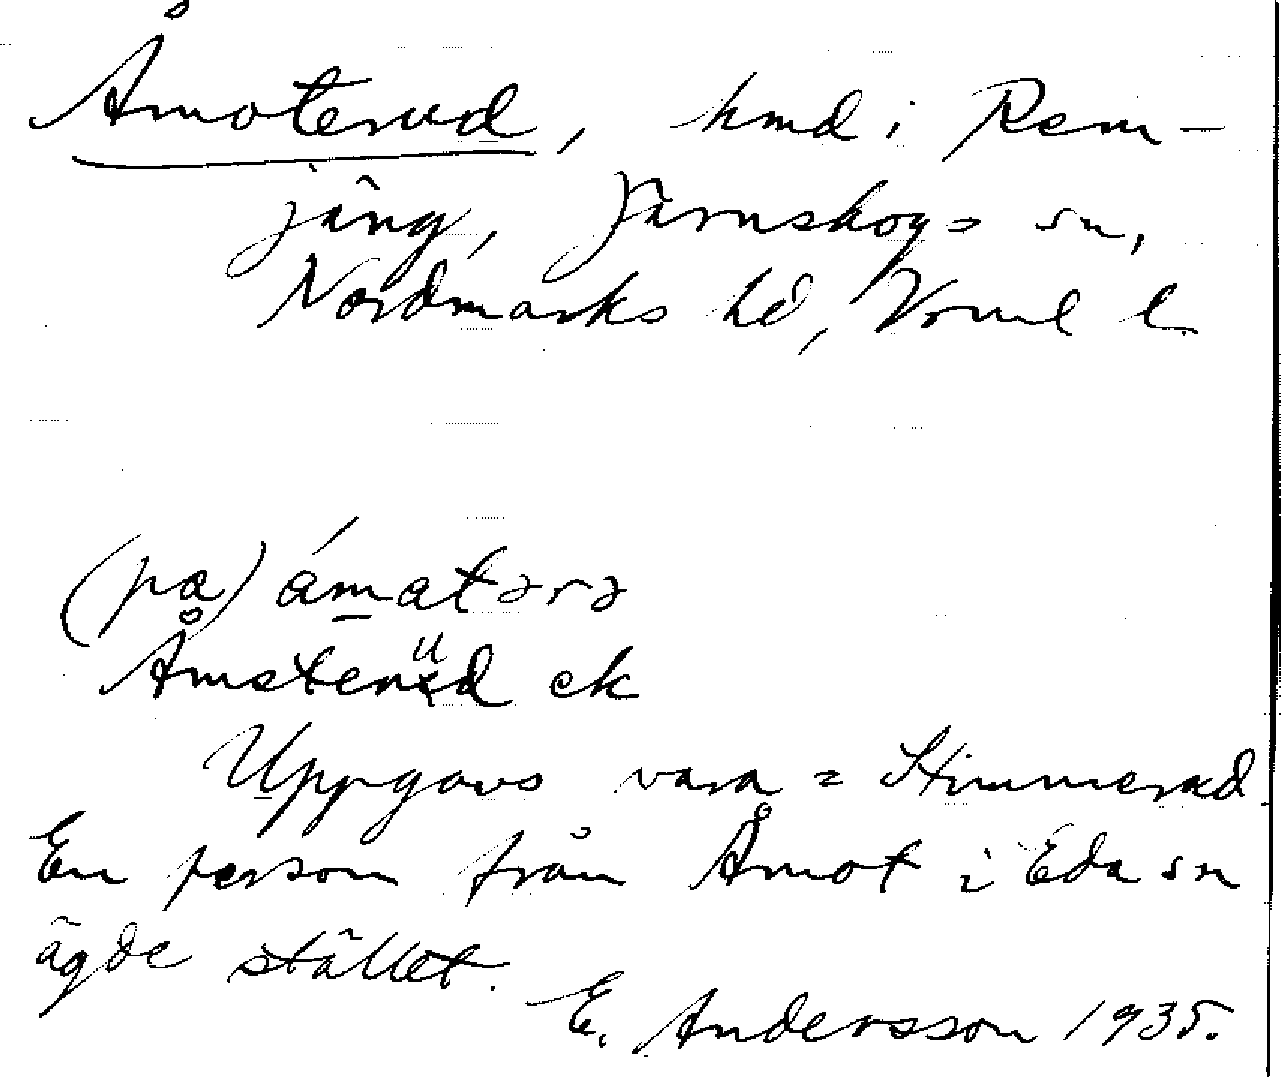 Åmoterud, hmd i Rem-
jäng, Järnskogs sn,
Nordmarks hd, Vrml l
(pa) ámatərə
Åmsterud ek
Uppgavs vara = Stimmerud
En person från Åmot i Eda sn
ägde stället.
E. Andersson 1935.